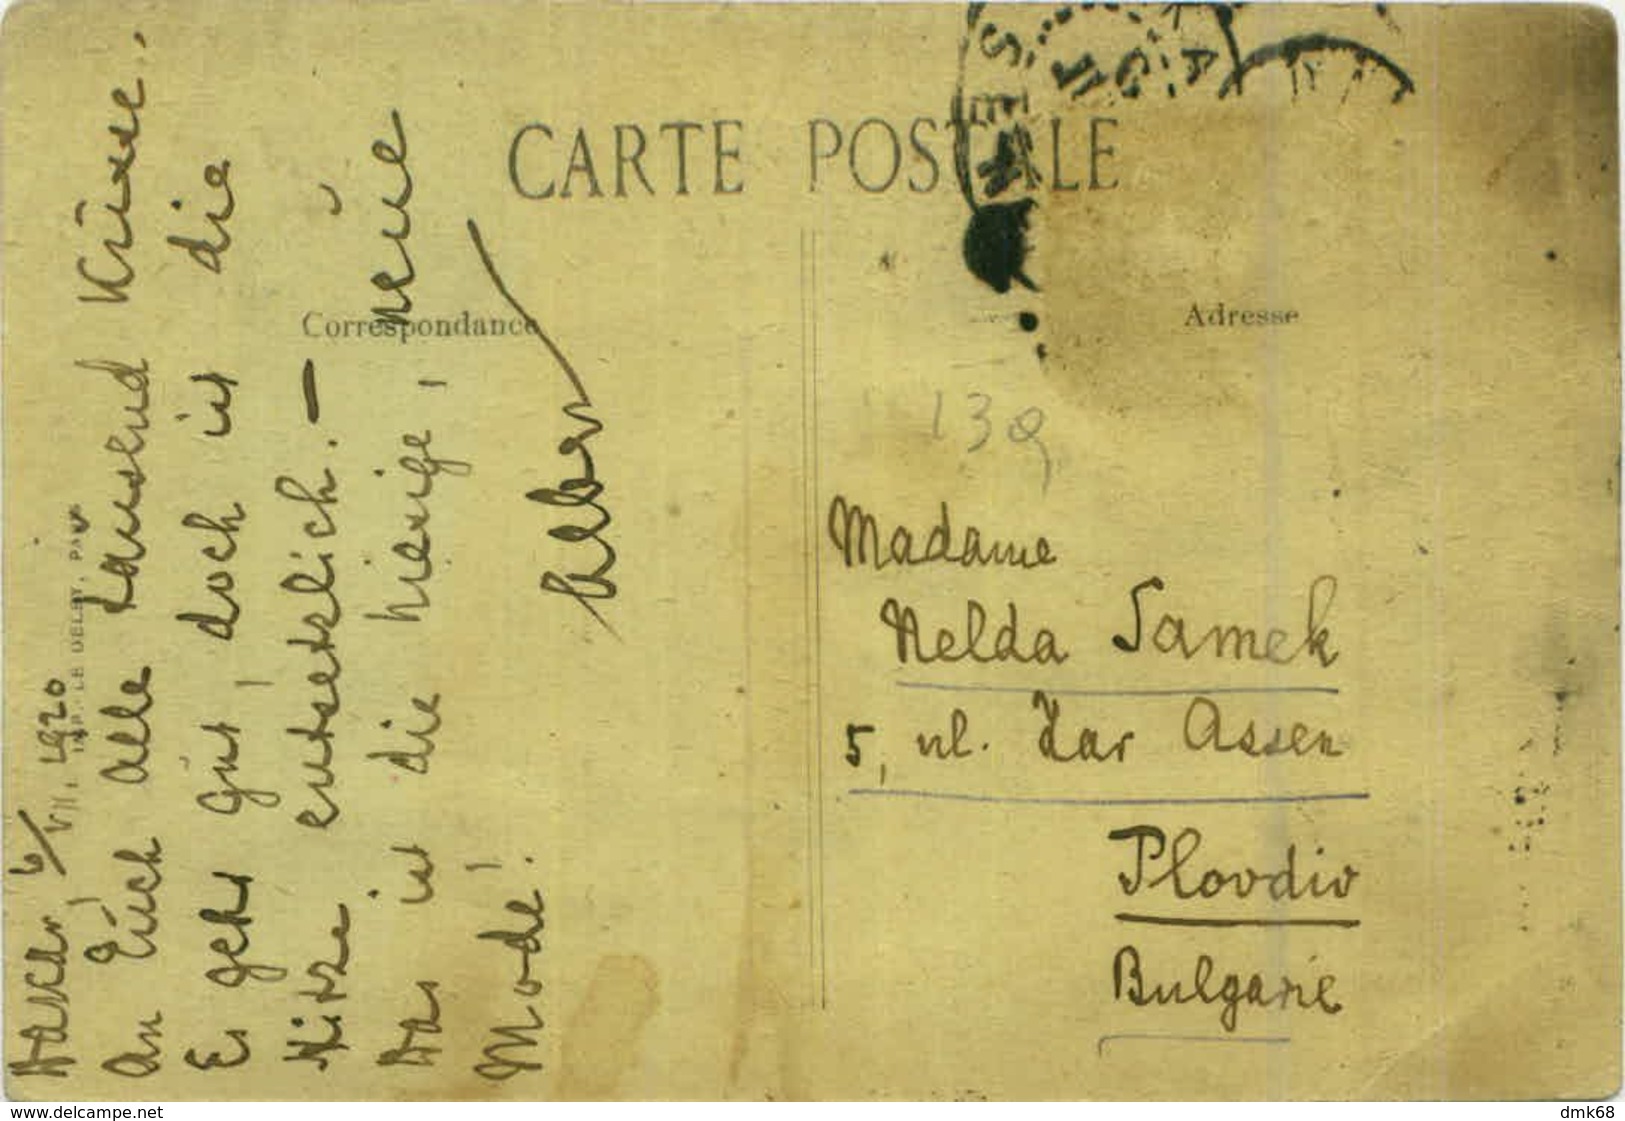 CARTE POSTALE
Correspondance
Adresse
Dakar, 6/VII, 1920
An Euch alle tausend Küsse.
Es geht gut, doch ist die
Hitze entsetzlich. —
Das ist die hiesige, neue
Mode!
139
Madame
Nelda Samek
5, ul. Zar Assen
Plovdiv
Bulgarie
IMP. LE DELEY, PARIS
www.delcampe.net
dmk68